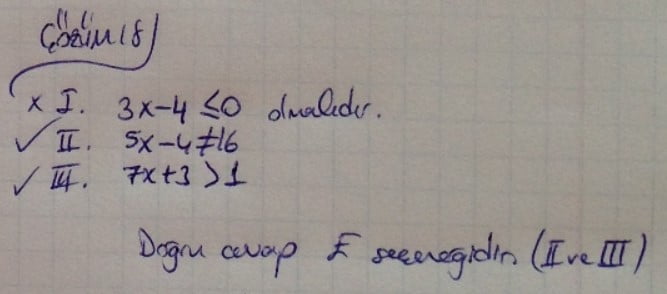 Çözüm 18)
x I. 3x-4 ≤0 olmalıdır.
✓ II. 5x-4≠16
✓ III. 7x+3 >1
Doğru cevap E seçeneğidir. (II ve III)